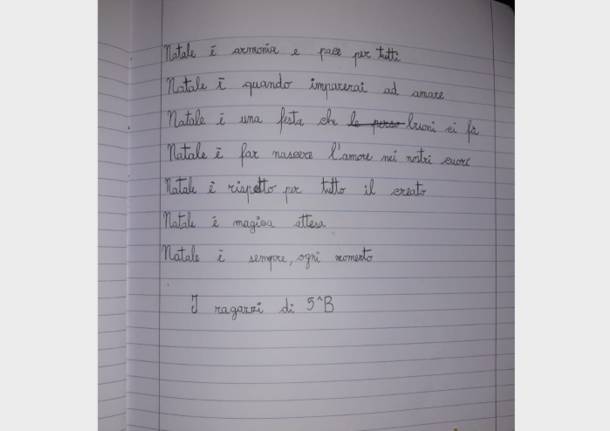 Natale è armonia e pace per tutti
Natale è quando imparerai ad amare
Natale è una festa che le perso buoni ci fa
Natale è far nascere l'amore nei nostri cuori
Natale è rispetto per tutto il creato
Natale è magica attesa
Natale è sempre, ogni momento
I ragazzi di 5^B